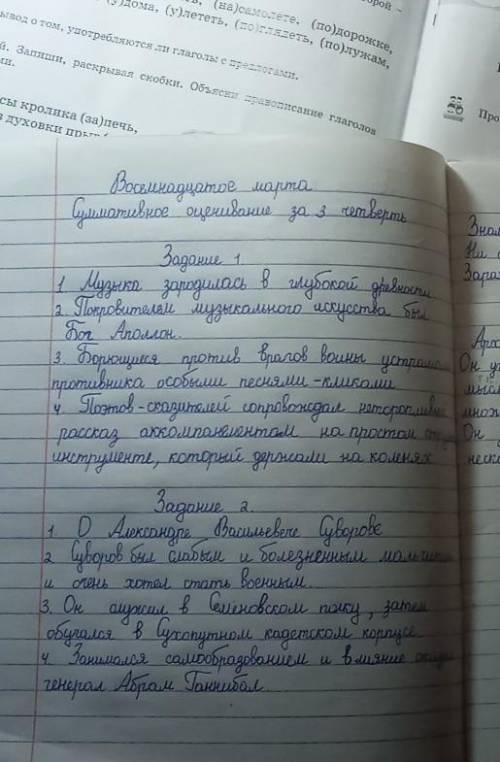 (на)самолёте, (по)дорожке,
(у)дома, (у)лететь, (по)глядеть, (по)лужам,
вывод о том, употребляются ли глаголы с предлогами.
Запиши, раскрывая скобки. Объясни правописание глаголов
кролика (за)печь,
духовки
Про
Восемнадцатое марта
Суммативное оценивание за 3 четверть
Задание 1.
1. Музыка зародилась в глубокой древности
2. Покровителем музыкального искусства был
Бог Аполлон.
3. Борющимся против врагов воины
противника особыми песнями-кликами
4. Поэтов-сказителей сопровождал
рассказ аккомпанементом на простом
инструменте, который держали на коленях
Задание 2.
1. О Александре Васильевече Суворове
2. Суворов был слабым и болезненным
и очень хотел стать военным.
3. Он служил в Семёновском полку, затем
обучался в Сухопутном кадетском корпусе
4. Занимался самообразованием и влияние
генерал Абрам Ганнибал.
Ни
Он
Он